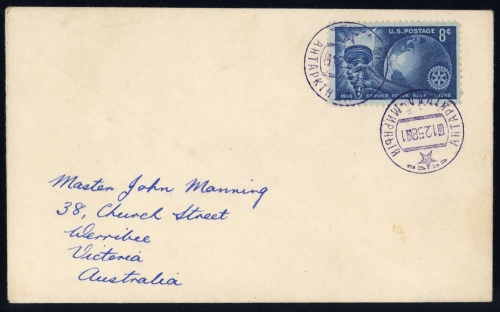 U.S. POSTAGE 8¢
1905 SERVICE ABOVE SELF 1955
АНТАРКТИ
АНТАРКТИДА-МИРНЫЙ
11258
Master John Manning
38, Church Street
Werribee
Victoria
Australia